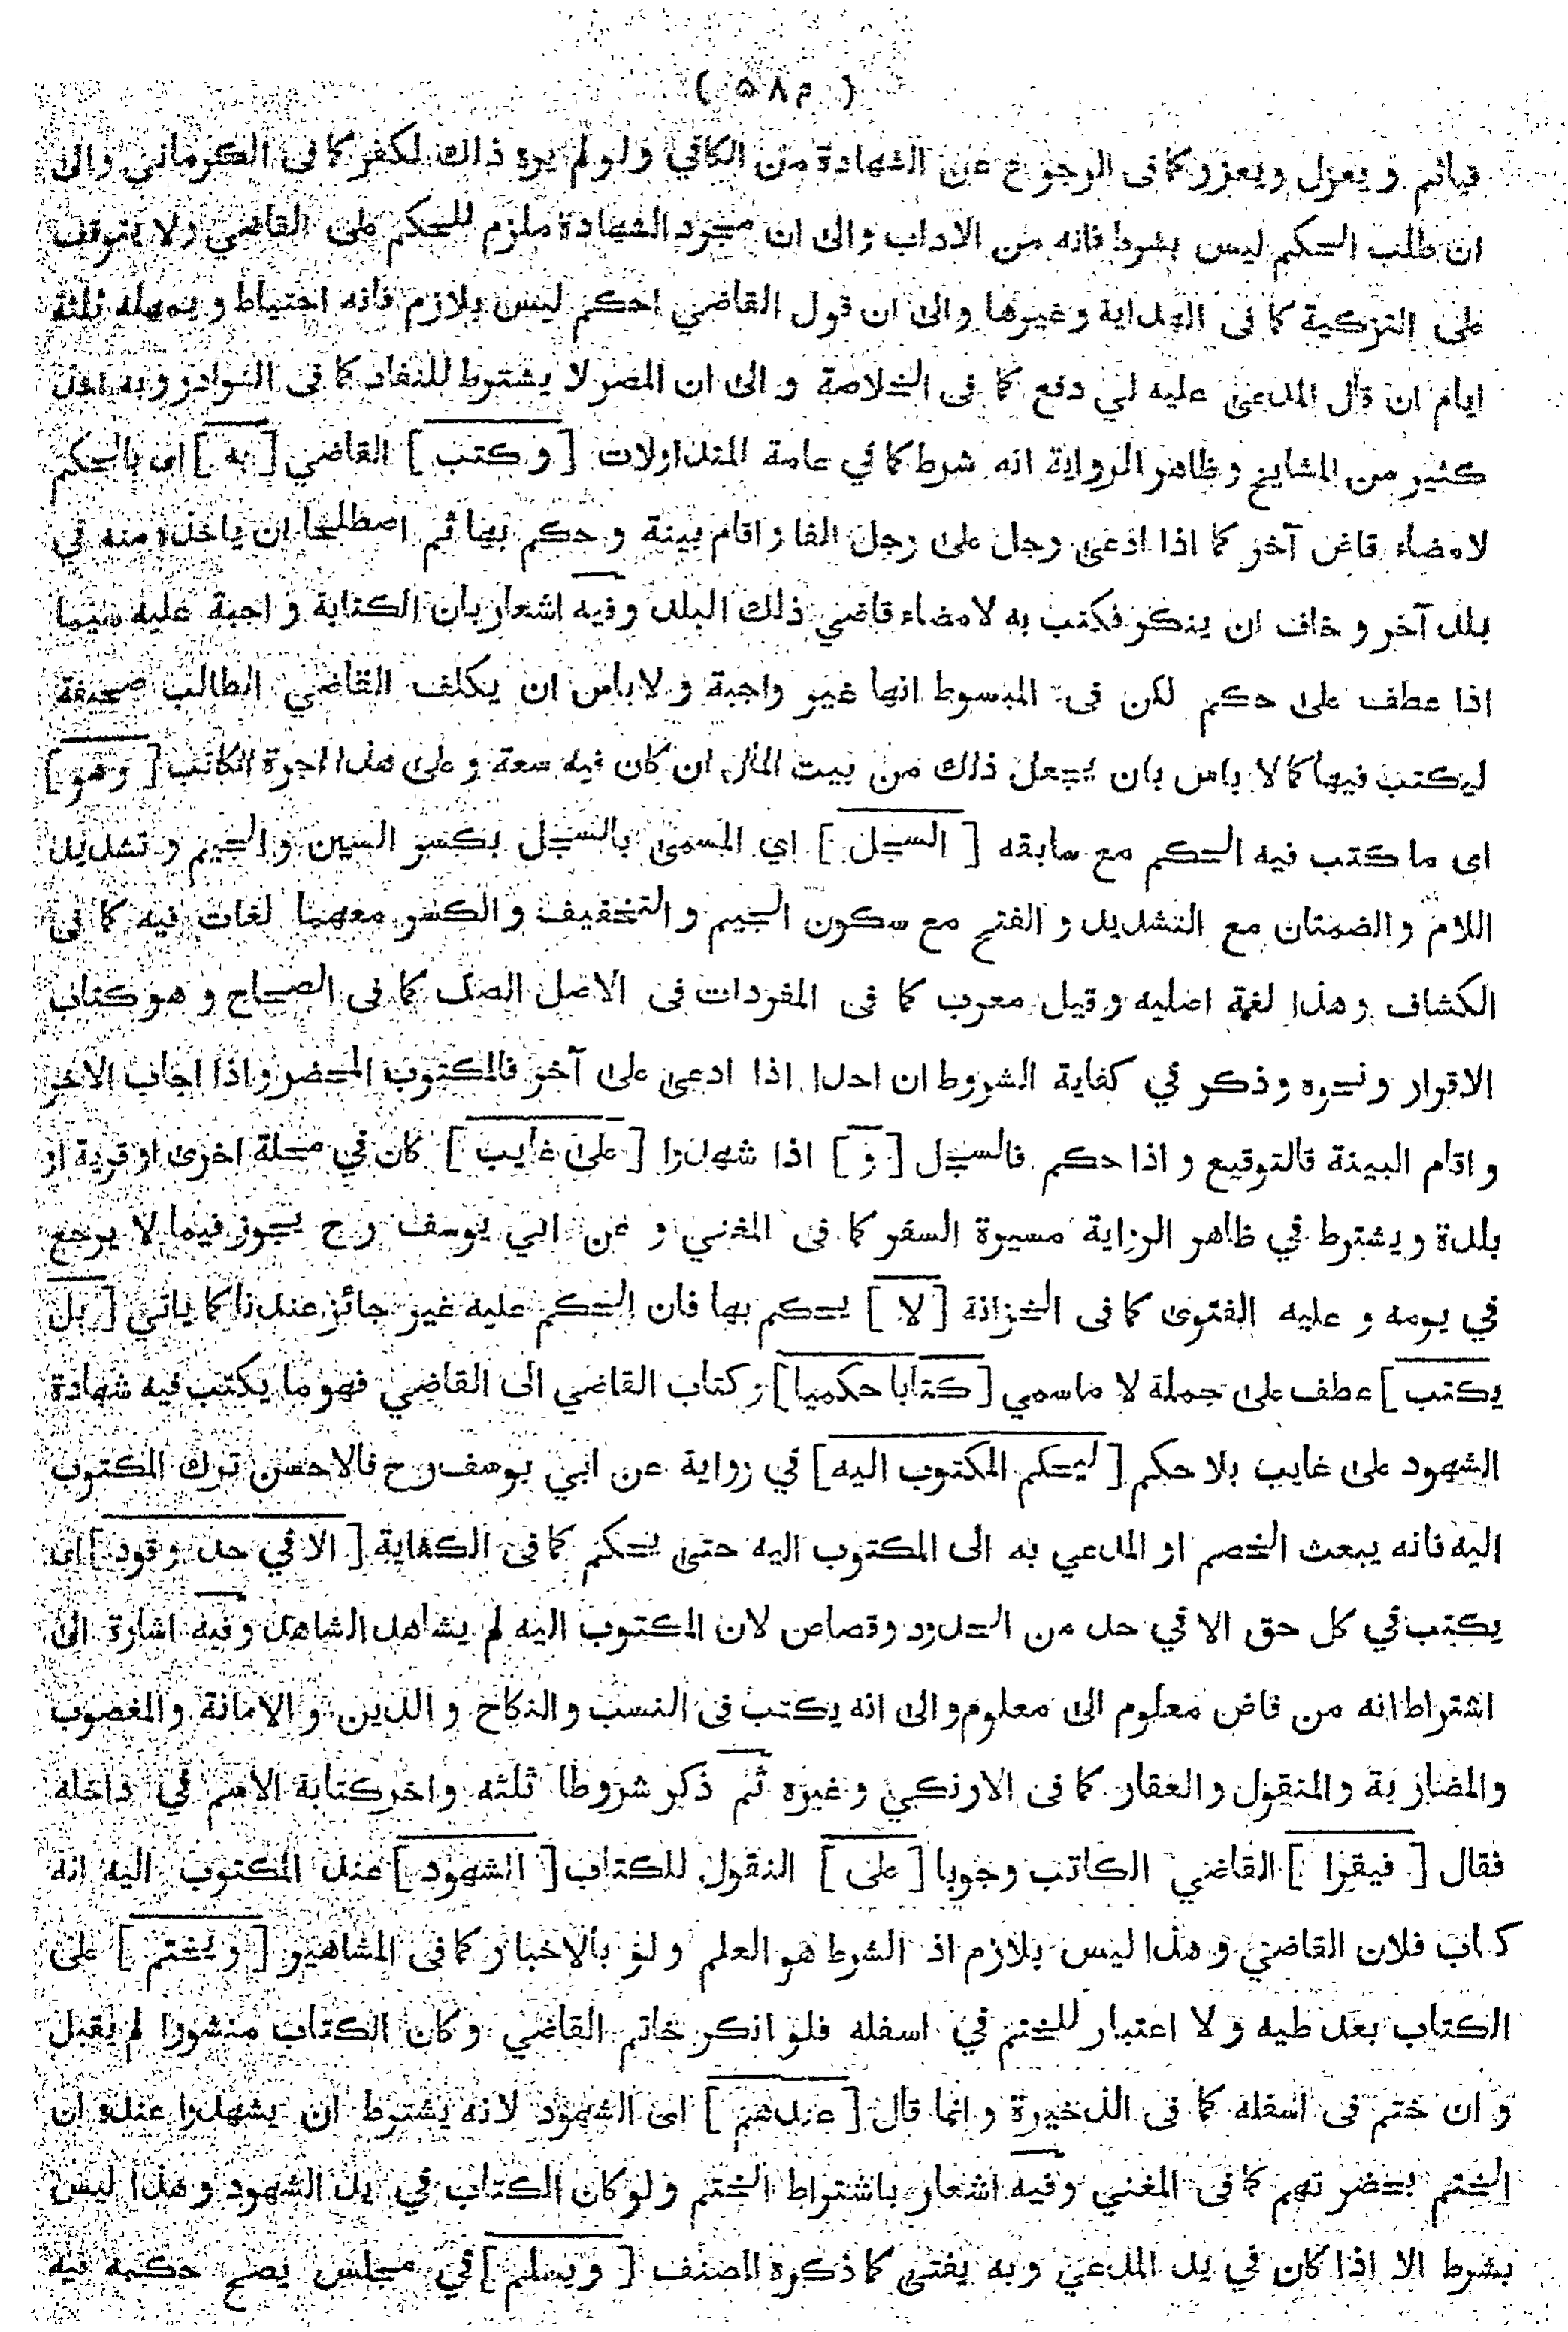 ( ٥٨٣ )
فياثم و يعزل و يعزر كما فى الرجوع عن الشهادة من الكافي ولو لم يره ذلك لكفر كما فى الكرماني والى
ان طلب الحكم ليس بشرط فانه من الاداب والى ان مجرد الشهادة ملزم للحكم على القاضي ولا يتوقف
على التزكية كما فى الهداية وغيرها والى ان قول القاضي احكم ليس بلازم فانه احتياط و يمهله ثلثة
ايام ان قال المدعى عليه لي دفع كما فى الخلاصة و الى ان المصر لا يشترط للنفاذ كما فى النوادر وبه اخذ
كثير من المشايخ وظاهر الرواية انه شرط كما في عامة المتداولات [ و كتب ] القاضي [ به ] اى بالحكم
لامضاء قاض آخر كما اذا ادعى رجل على رجل الفا و اقام بينة و حكم بها ثم اصطلحا ان ياخذه منه في
بلد آخر و خاف ان ينكر فكتب به لامضاء قاضي ذلك البلد وفيه اشعار بان الكتابة واجبة عليه سيما
اذا عطف على حكم لكن فى المبسوط انها غير واجبة و لا باس ان يكلف القاضي الطالب صحيفة
ليكتب فيها كما لا باس بان يجعل ذلك من بيت المال ان كان فيه سعة و على هذا اجرة الكاتب [ وهو ]
اى ما كتب فيه الحكم مع سابقه [ السجل ] اي المسمى بالسجل بكسر السين والجيم و تشديد
اللام و الضمتان مع التشديد و الفتح مع سكون الجيم و التخفيف و الكسر معهما لغات فيه كما فى
الكشاف وهذا لغة اصليه وقيل معرب كما فى المفردات فى الاصل الصك كما فى الصحاح و هو كتاب
الاقرار و نحوه وذكر في كفاية الشروط ان احدا اذا ادعى على آخر فالمكتوب المحضر واذا اجاب الاخر
و اقام البينة فالتوقيع و اذا حكم فالسجل [ و ] اذا شهدوا [ على غايب ] كان في محلة اخرى او قرية او
بلدة ويشترط في ظاهر الرواية مسيرة السفر كما فى المغني و عن ابي يوسف رح يجوز فيما لا يرجع
في يومه و عليه الفتوى كما فى الخزانة [ لا ] يحكم بها فان الحكم عليه غير جائز عندنا كما ياتي [ بل
يكتب ] عطف على جملة لا ماسمي [ كتابا حكميا ] و كتاب القاضي الى القاضي فهو ما يكتب فيه شهادة
الشهود على غايب بلا حكم [ ليحكم المكتوب اليه ] في رواية عن ابي يوسف رح فالاحسن ترك المكتوب
اليه فانه يبعث الخصم او المدعي به الى المكتوب اليه حتى يحكم كما فى الكفاية [ الا في حد و قود ] اى
يكتب في كل حق الا في حد من الحدود وقصاص لان المكتوب اليه لم يشاهد الشاهد وفيه اشارة الى
اشتراط انه من قاض معلوم الى معلوم والى انه يكتب فى النسب والنكاح و الدين و الامانة والمغصوب
والمضاربة والمنقول والعقار كما فى الاوزكي وغيره ثم ذكر شروطا ثلثه واخر كتابة الاسم في داخله
فقال [ فيقرا ] القاضي الكاتب وجوبا [ على ] النقول للكتاب [ الشهود ] عند المكتوب اليه انه
كتاب فلان القاضي و هذا ليس بلازم اذ الشرط هو العلم و لو بالاخبار كما فى المشاهير [ و يختم ] على
الكتاب بعد طيه و لا اعتبار للختم في اسفله فلو انكر خاتم القاضي و كان الكتاب منشورا لم يقبل
و ان ختم فى اسفله كما فى الذخيرة و انما قال [ عندهم ] اى الشهود لانه يشترط ان يشهدوا عنده ان
الختم بحضرتهم كما فى المغني وفيه اشعار باشتراط الختم ولو كان الكتاب في يد الشهود وهذا ليس
بشرط الا اذا كان في يد المدعي وبه يفتى كما ذكره المصنف [ ويسلم ] في مجلس يصح حكمه فيه